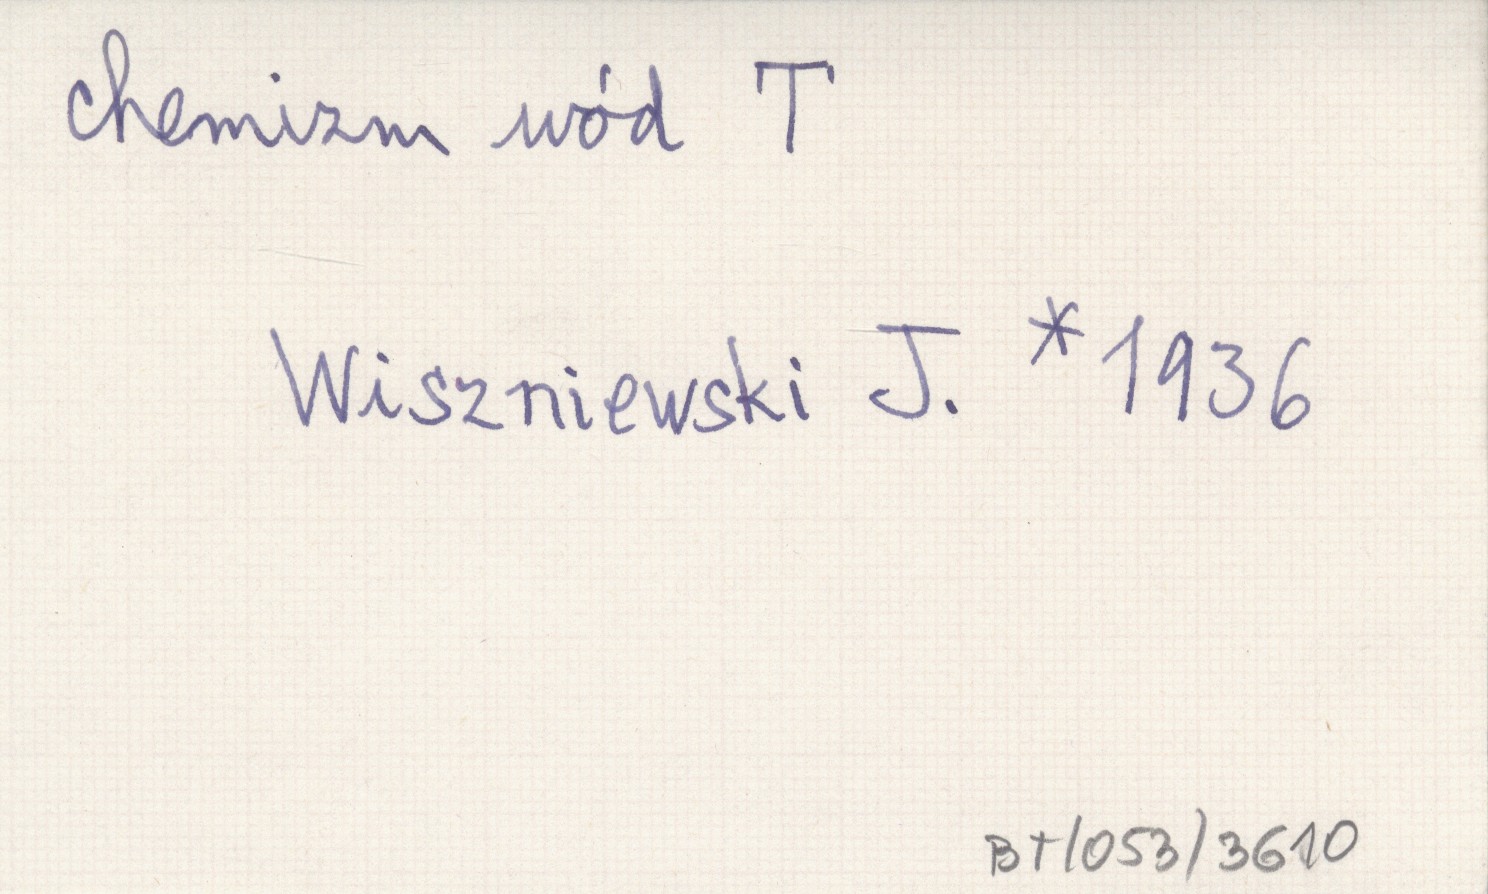 chemizm wód T
Wiszniewski J. *1936
BT/053/3610